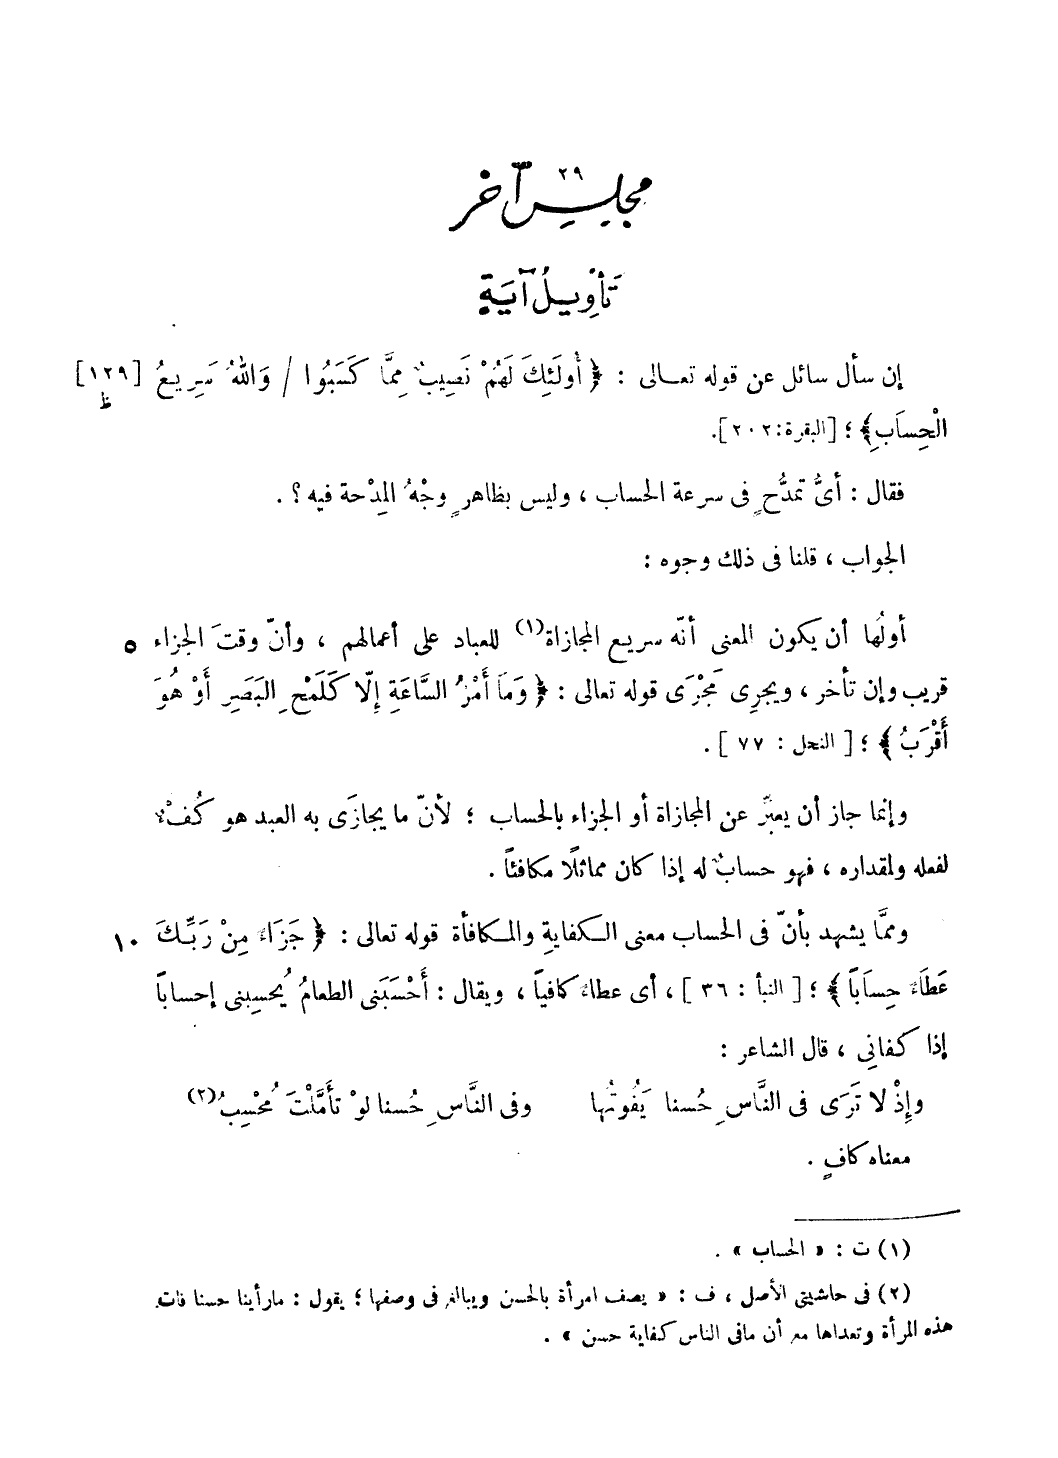 ٢٩
مجلس آخر
تَأْوِيلُ آيَةٍ
إن سأل سائل عن قوله تعـالى : ﴿ أُولَئِكَ لَهُمْ نَصِيبٌ مِمَّا كَسَبُوا / وَاللهُ سَرِيعُ [١٢٩
ظ]
الْحِسَابِ﴾ ؛ [البقرة:٢٠٢].
فقال : أىُّ تمدُّحٍ فى سرعة الحساب ، وليس بظاهرٍ وجْهُ المِدْحة فيه ؟ .
الجواب ، قلنا فى ذلك وجوه :
أولُها أن يكون المعنى أنّه سريع المجازاة(١) للعباد على أعمالهم ، وأنّ وقتَ الجزاء ٥
قريب وإن تأخر ، ويجرِى مَجْرَى قوله تعالى : ﴿ وَمَا أَمْرُ السَّاعَةِ إِلّا كَلَمْحِ البَصَرِ أَوْ هُوَ
أَقْرَبُ ﴾ ؛ [ النحل : ٧٧ ] .
وإنما جاز أن يعبّر عن المجازاة أو الجزاء بالحساب ؛ لأنّ ما يجازَى به العبد هو كُفْءٌ
لفعله ولمقداره ، فهو حسابٌ له إذا كان مماثلًا مكافئاً .
وممَّا يشهد بأنّ فى الحساب معنى الـكفايةِ والمـكافأة قوله تعالى : ﴿ جَزَاءً مِنْ رَبِّـكَ ١٠
عَطَاءً حِسَاباً ﴾ ؛ [ النبأ : ٣٦ ] ، أى عطاءً كافياً ، ويقال : أَحْسَبَنى الطعامُ يُحسِبنى إحساباً
إذا كفانِي ، قال الشاعر :
وإِذْ لا تَرَى فى النَّاسِ حُسنا يَفُوتُها وفى النَّاسِ حُسنا لوْ تأَمَّلْتَ مُحْسِبُ(٢)
معناه كافٍ .
(١) ت : « الحساب » .
(٢) فى حاشيتى الأصل ، ف : « يصف امرأة بالحسن ويبالغ فى وصفها ؛ يقول : مارأينا حسنا فات
هذه المرأة وتعداها مع أن مافى الناس كفاية حسن » .